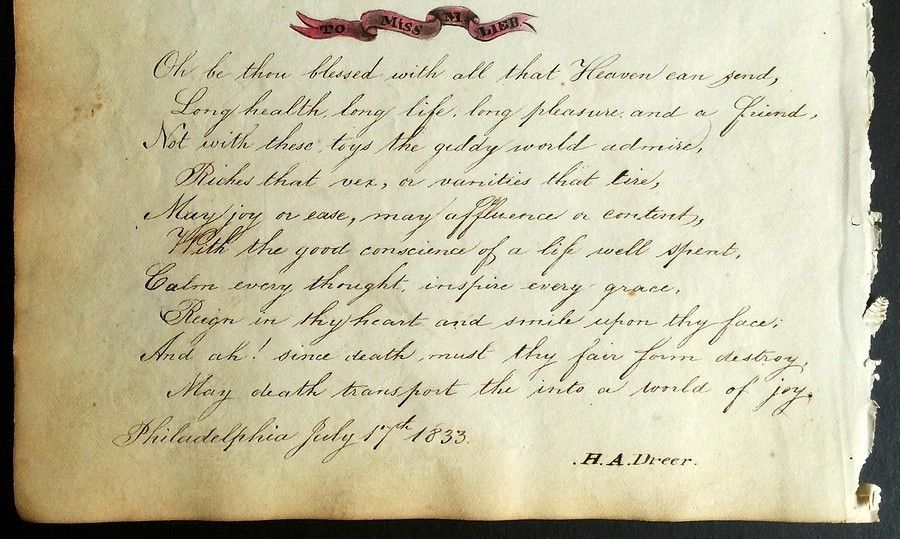 TO MISS M LIEB
Oh be thou blessed with all that Heaven can send,
Long health, long life, long pleasure, and a friend,
Not with these toys the giddy world admire,
Riches that vex, or vanities that tire,
May joy or ease, may affluence or content,
With the good conscience of a life well spent,
Calm every thought, inspire every grace,
Reign in thy heart and smile upon thy face;
And ah! since death must thy fair form destroy,
May death transport the into a world of joy.
Philadelphia July 17th 1833.
H. A. Dreer.